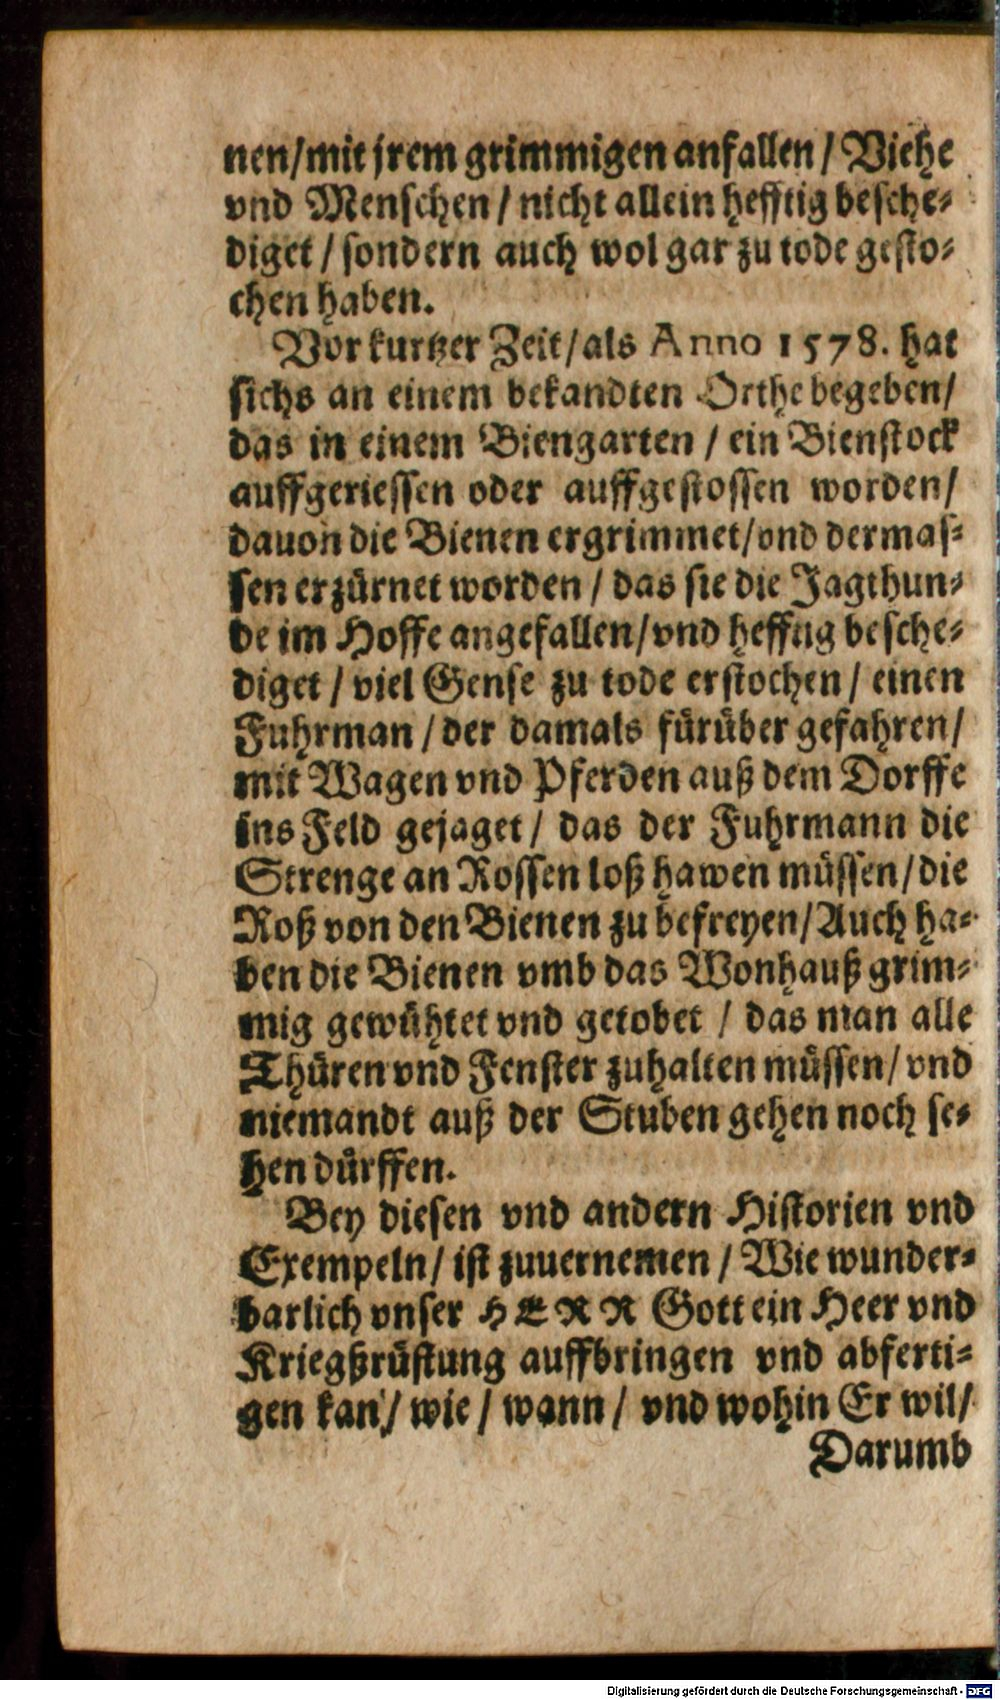 nen/mit jrem grimmigen anfallen / Viehe
vnd Menschen / nicht allein hefftig besche-
diget / sondern auch wol gar zu tode gesto-
chen haben.
Vor kurtzer Zeit/als Anno 1578. hat
sichs an einem bekandten Orthe begeben/
das in einem Biengarten / ein Bienstock
auffgeriessen oder auffgestossen worden/
dauon die Bienen ergrimmet/vnd dermas-
sen erzürnet worden / das sie die Jagthun-
de im Hoffe angefallen/vnd hefftig besche-
diget / viel Gense zu tode erstochen / einen
Fuhrman / der damals fürüber gefahren/
mit Wagen vnd Pferden auß dem Dorffe
ins Feld gejaget / das der Fuhrmann die
Strenge an Rossen loß hawen müssen/die
Roß von den Bienen zu befreyen/Auch ha-
ben die Bienen vmb das Wonhauß grim-
mig gewühtet vnd getobet / das man alle
Thüren vnd Fenster zuhalten müssen/vnd
niemandt auß der Stuben gehen noch se-
hen dürffen.
Bey diesen vnd andern Historien vnd
Exempeln/ ist zuuernemen / Wie wunder-
barlich vnser HERR Gott ein Heer vnd
Kriegßrüstung auffbringen vnd abferti-
gen kan / wie / wann / vnd wohin Er wil/
Darumb
Digitalisierung gefördert durch die Deutsche Forschungsgemeinschaft - DFG